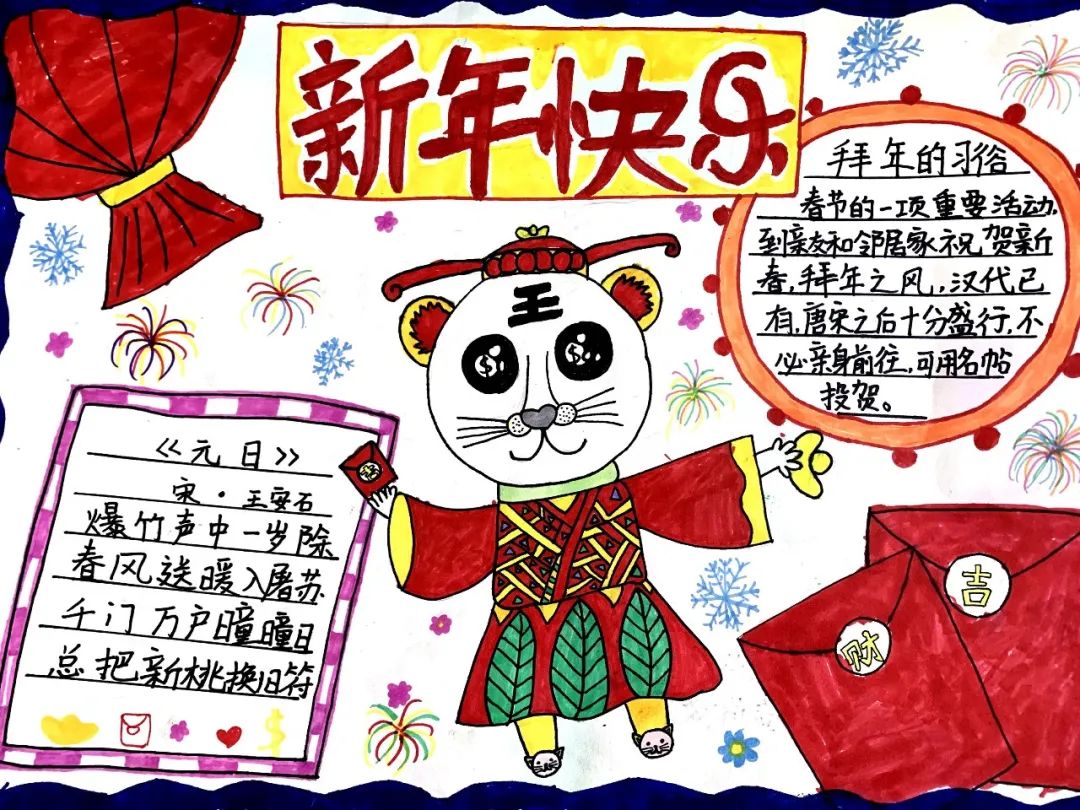 新年快乐
拜年的习俗
春节的一项重要活动,
到亲友和邻居家祝贺新
春,拜年之风,汉代已
有,唐宋之后十分盛行,不
必亲身前往,可用名帖
投贺。
王
《元日》
宋·王安石
爆竹声中一岁除
春风送暖入屠苏
千门万户曈曈日
总把新桃换旧符
吉
财
$
$
$